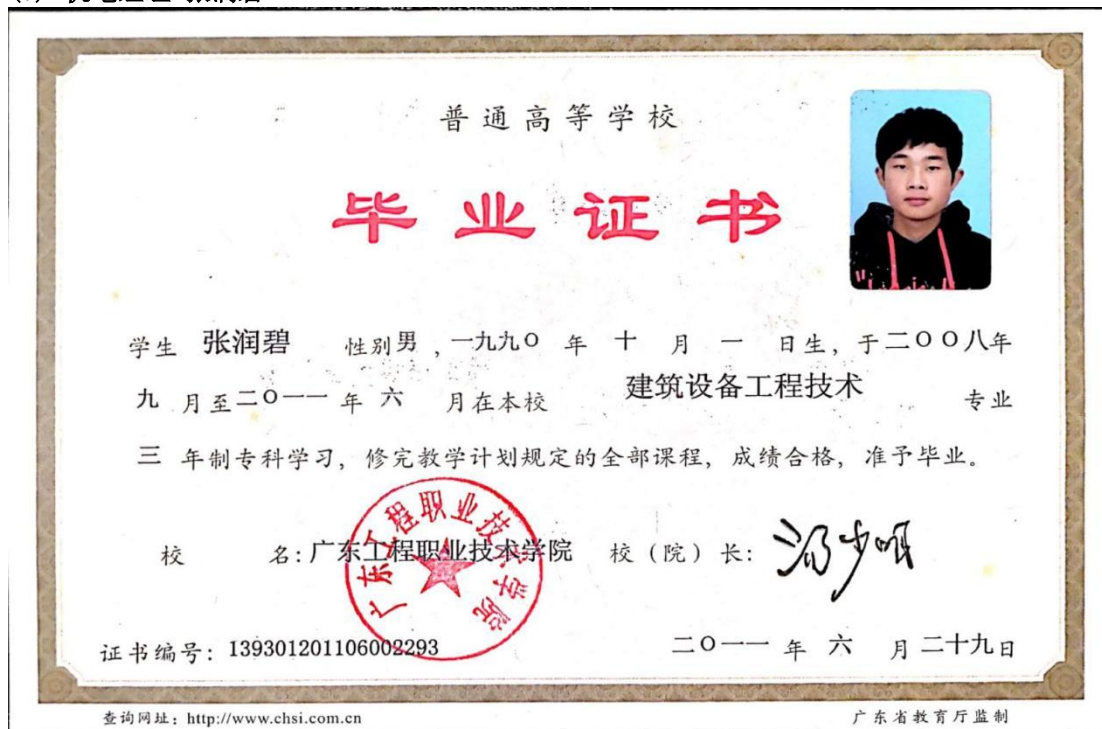 普通高等学校
毕业证书
学生 张润碧 性别男，一九九〇 年 十 月 一 日生，于二〇〇八年
九 月至二〇一一 年 六 月在本校 建筑设备工程技术 专业
三 年制专科学习，修完教学计划规定的全部课程，成绩合格，准予毕业。
校 名：广东工程职业技术学院 校（院）长：
广东工程职业技术学院
证书编号：139301201106002293 二〇一一 年 六 月 二十九日
查询网址：http://www.chsi.com.cn 广东省教育厅监制